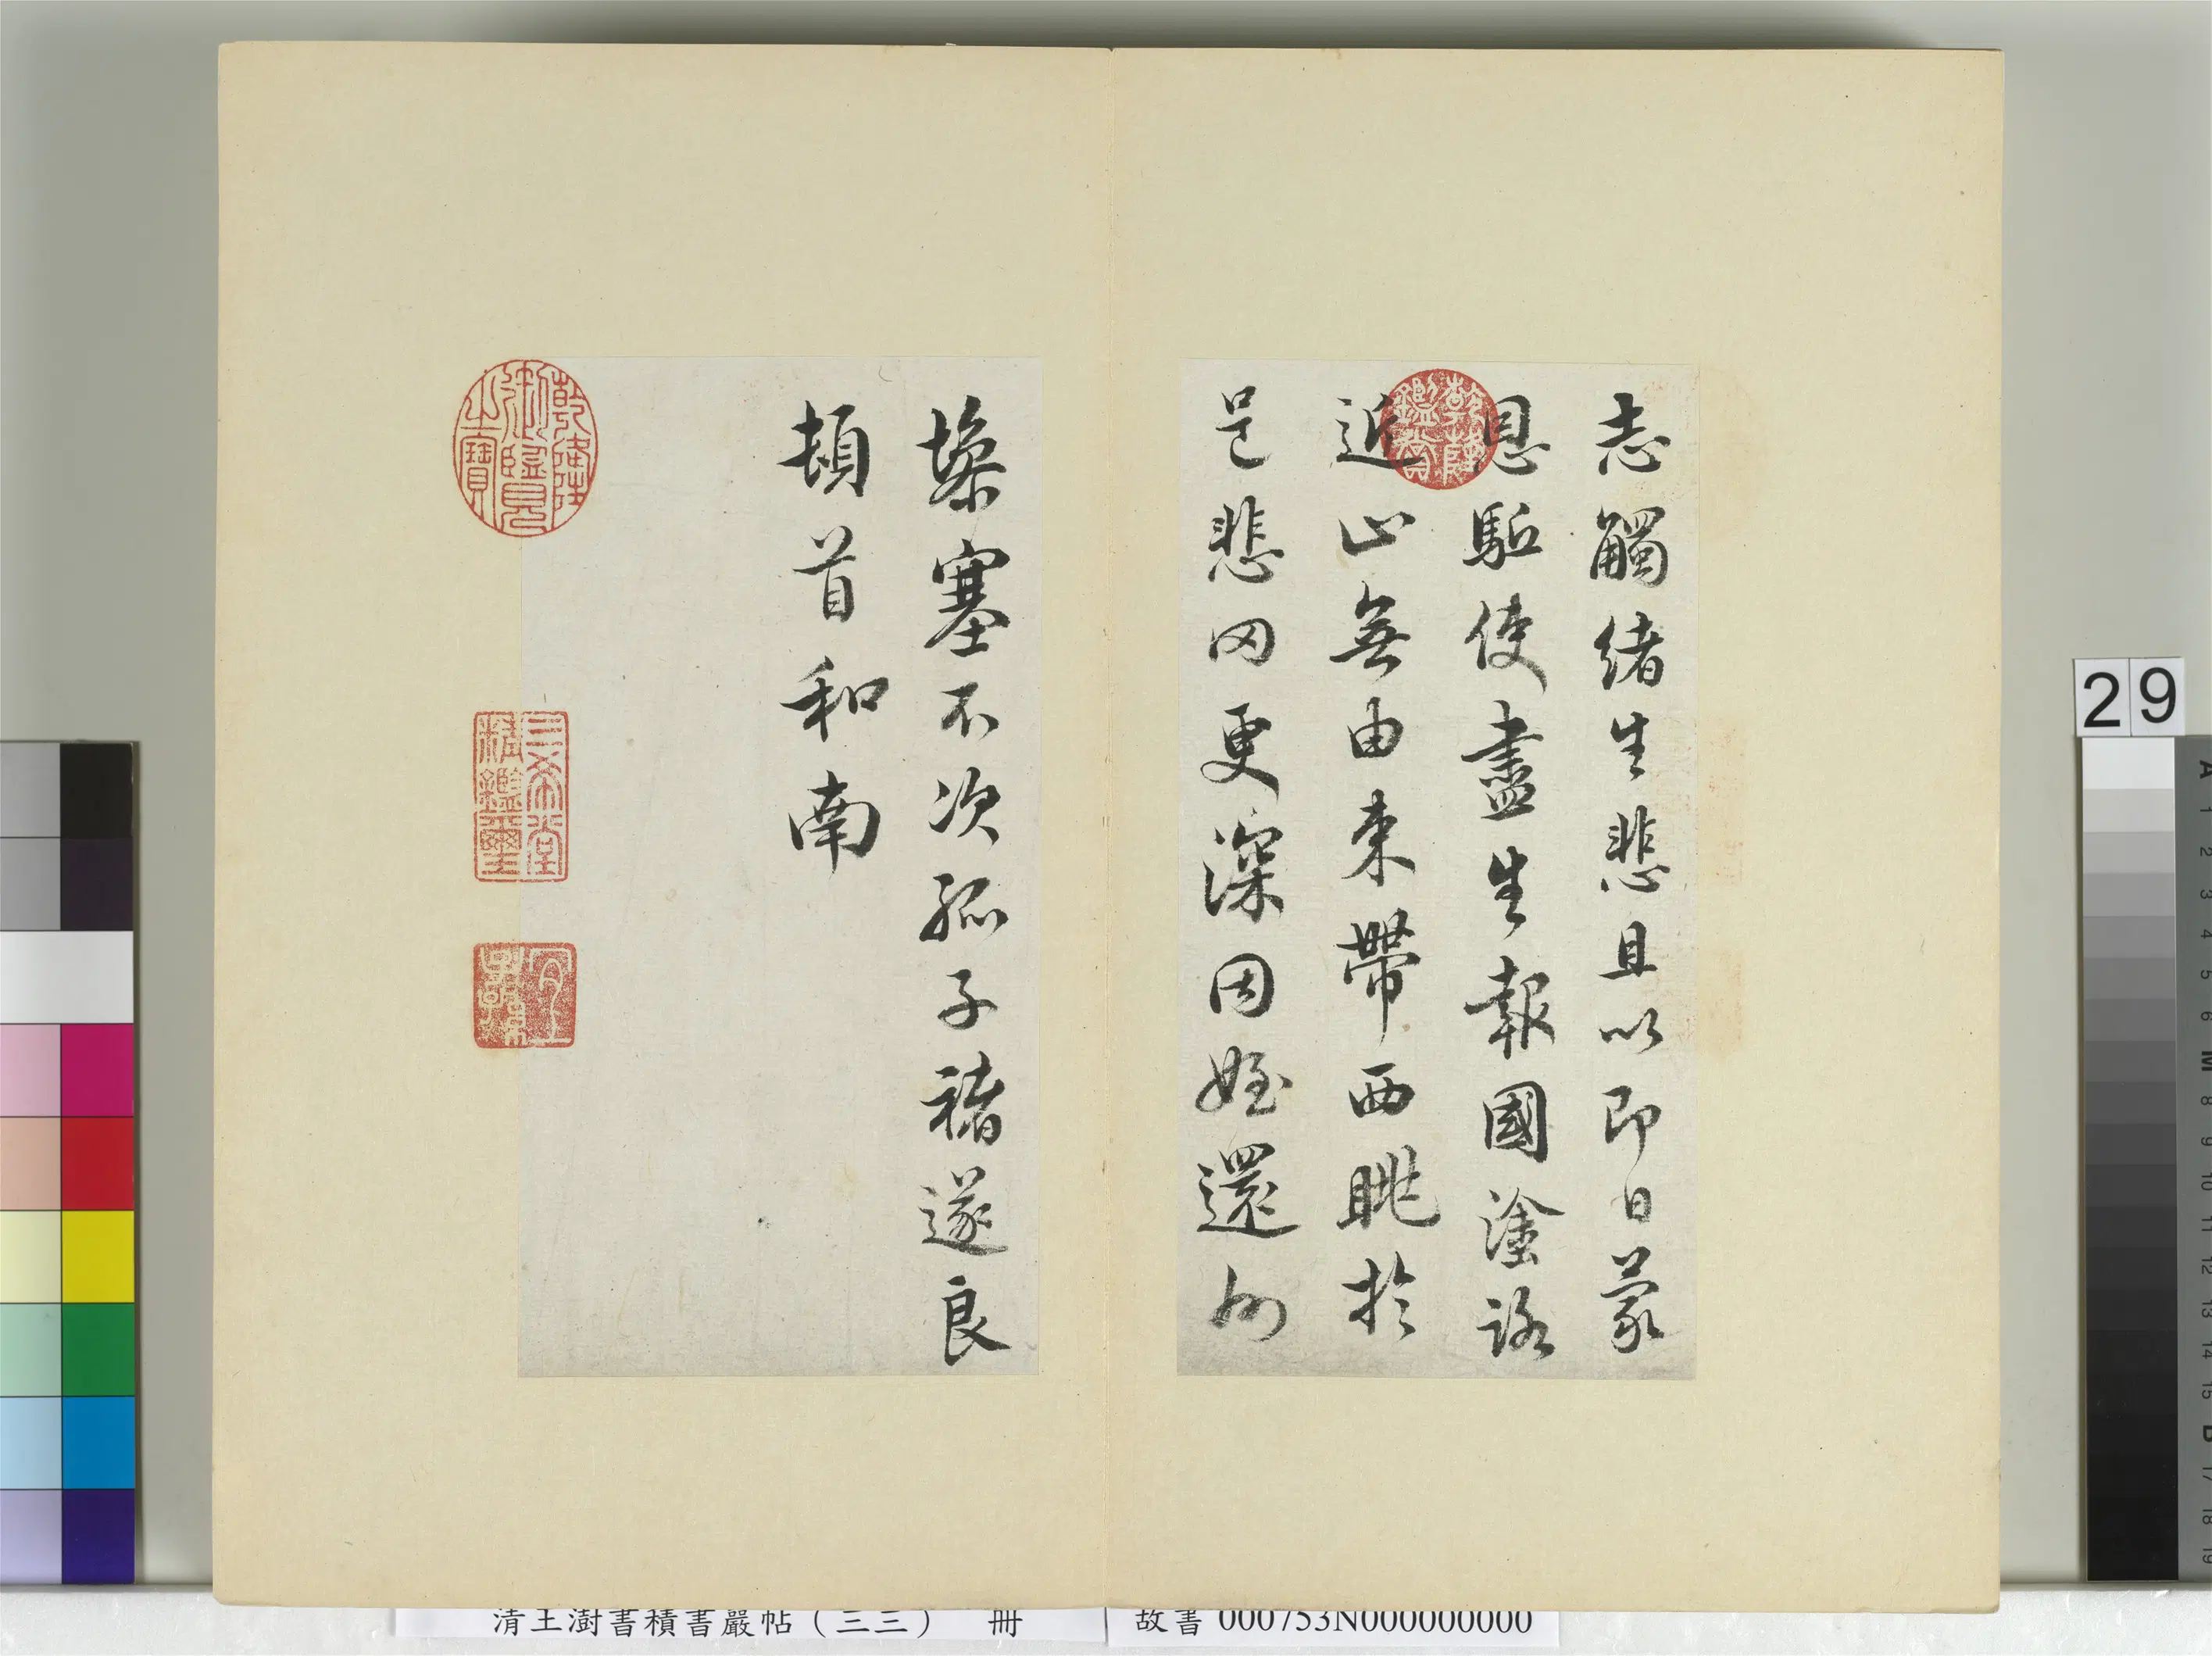 志觸緒生悲且以即日蒙
恩駈使盡生報國塗路
近止無由束帶西眺於
邑悲罔更深因姪還州
塞不次孤子褚遂良
頓首和南
乾隆鑑賞
乾隆御覽之寶
三希堂精鑑璽
宜子孫
29
清王澍書積書巖帖（三三） 冊
故書 000753N000000000